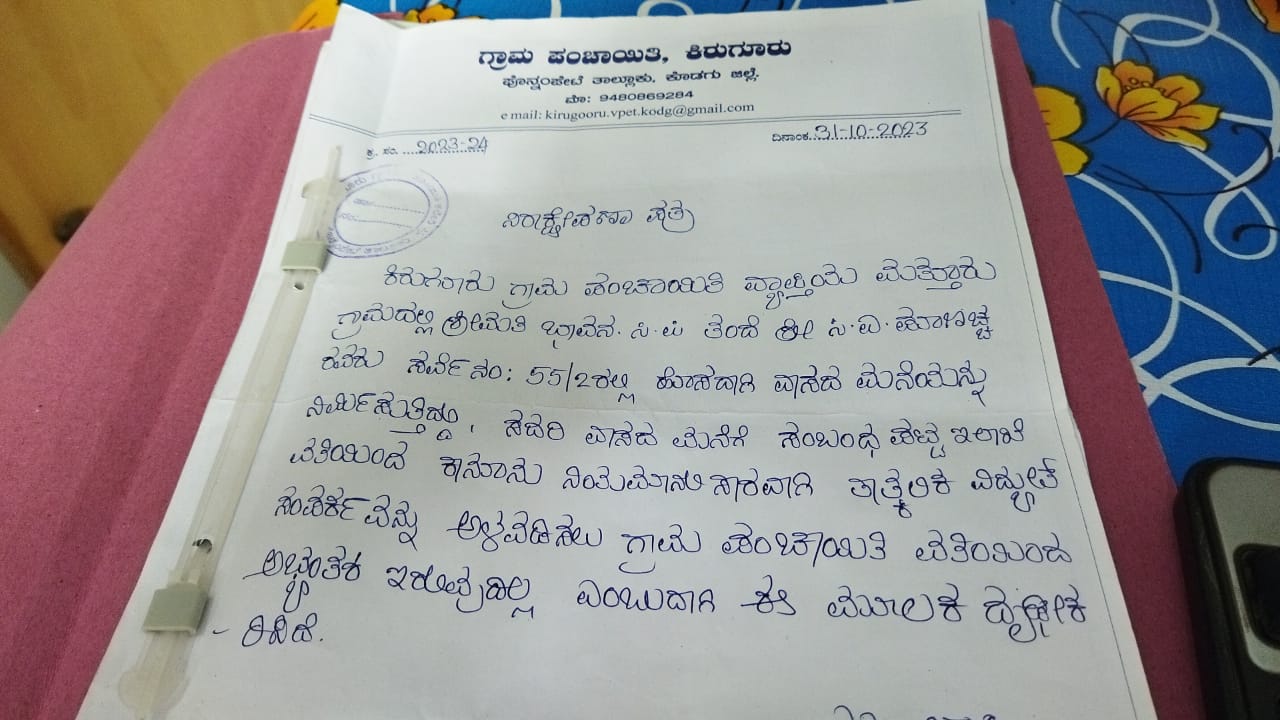 ಗ್ರಾಮ ಪಂಚಾಯಿತಿ, ಕಿರುಗೂರು
ಪೊನ್ನಂಪೇಟೆ ತಾಲ್ಲೂಕು, ಕೊಡಗು ಜಿಲ್ಲೆ.
ಮೊ: 9480869284
e mail: kirugooru.vpet.kodg@gmail.com
ಕ್ರ. ಸಂ. ....2023-24
ದಿನಾಂಕ.31-10-2023
ನಿರಾಕ್ಷೇಪಣಾ ಪತ್ರ
ಕಿರುಗೂರು ಗ್ರಾಮ ಪಂಚಾಯಿತಿ ವ್ಯಾಪ್ತಿಯ ಮತ್ತೂರು
ಗ್ರಾಮದಲ್ಲಿ ಶ್ರೀಮತಿ ಭಾವನ. ಸಿ.ಪಿ ತಂದೆ ಶ್ರೀ ಸಿ.ಎ.
ರವರು ಸರ್ವೆ ನಂ: 55/2ರಲ್ಲಿ ಹೊಸದಾಗಿ ವಾಸದ ಮನೆಯನ್ನು
ನಿರ್ಮಿಸುತ್ತಿದ್ದು, ಸದರಿ ವಾಸದ ಮನೆಗೆ ಸಂಬಂಧ ಪಟ್ಟ ಇಲಾಖೆ
ವತಿಯಿಂದ ಕಾನೂನು ನಿಯಮಾನುಸಾರವಾಗಿ ತಾತ್ಕಲಿಕ ವಿದ್ಯುತ್
ಸಂಪರ್ಕವನ್ನು ಅಳವಡಿಸಲು ಗ್ರಾಮ ಪಂಚಾಯಿತಿ ವತಿಯಿಂದ
ಅಭ್ಯಂತರ ಇರುವುದಿಲ್ಲ ಎಂಬುದಾಗಿ ಈ ಮೂಲಕ ದೃಢೀಕ
- ರಿಸಿದೆ.